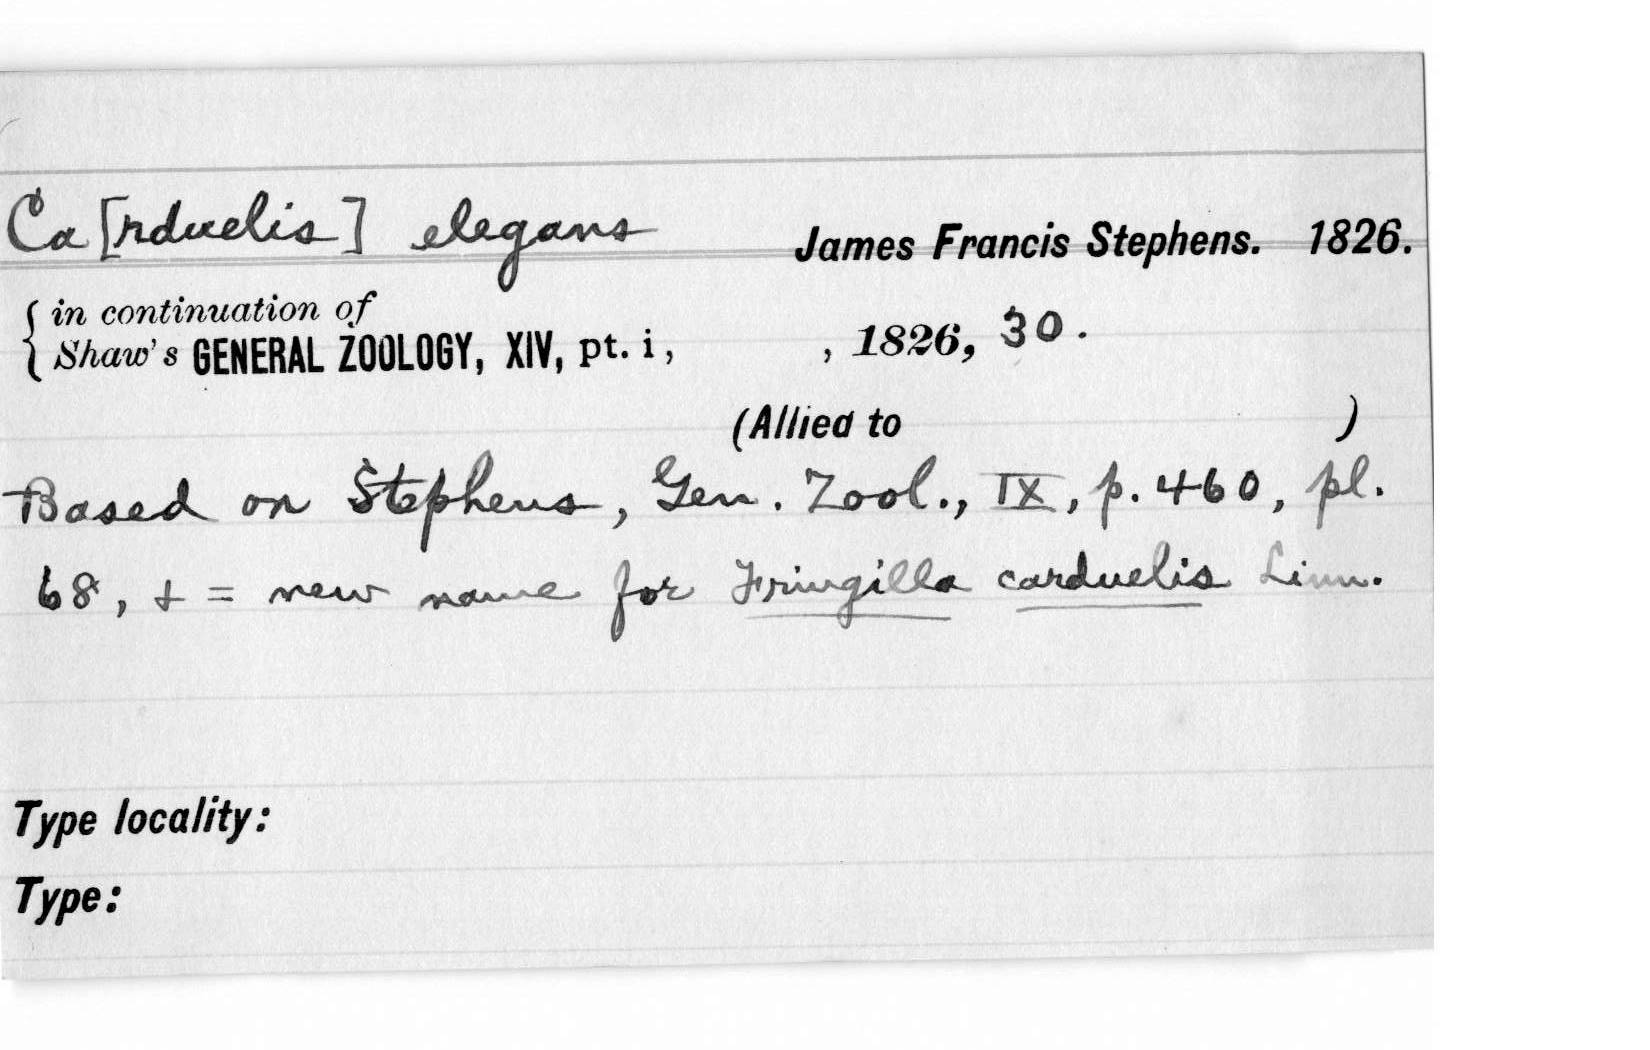 Ca[rduelis] elegans James Francis Stephens. 1826.
{ in continuation of
Shaw's GENERAL ZOOLOGY, XIV, pt. i, , 1826, 30.
(Allied to )
Based on Stephens, Gen. Zool., IX, p. 460, pl.
68, & = new name for Fringilla carduelis Linn.
Type locality:
Type: